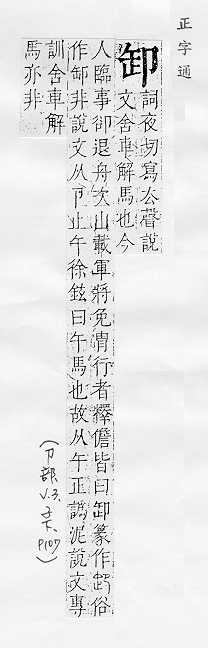 正字通
卸
詞夜切寫去聲說
文舍車解馬也今
人臨事卻退舟次山載軍將免胄行者釋儋皆曰卸篆作俗
作缷非說文从卩止午徐鉉曰午馬也故从午正譌泥說文專
訓舍車解
馬亦非
(卩部 V.3. 子下. P107)